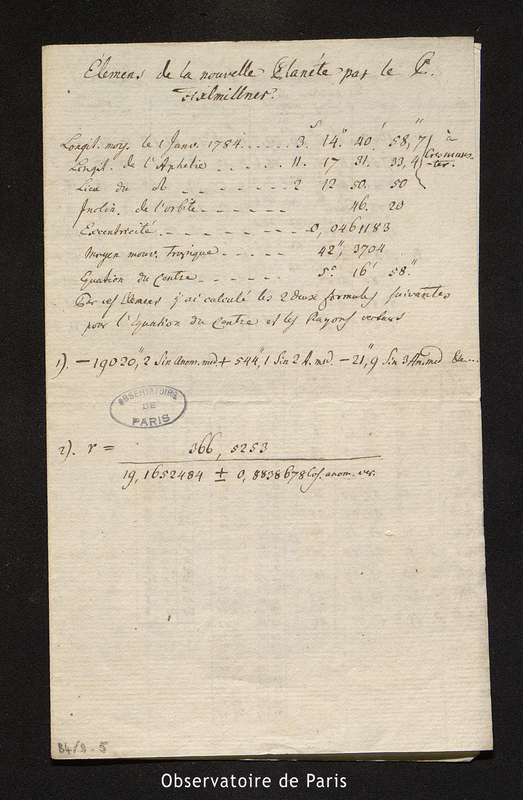 Élemens de la nouvelle Planéte par le P.
Fixlmillner.
Longit. moy. le 1 Janv. 1784 ..... 3.ˢ 14.° 40.′ 58,″7 à
Longit. de l'Aphelie ..... 11. 17 31. 33,4 Cremuns-
ter.
Lieu du ☊ ..... 2 12 50. 50
Inclin. de l'orbite ..... 46. 20
Excentricité ..... 0, 0461183
Moyen mouv. tropique ..... 42″, 3704
Equation du Centre ..... 5.° 16′ 58.″
Par ces Elemens j'ai calculé les 2 deux formules suivantes
pour l'Equation du Centre et les Rayons vecteurs
1). − 19020,″2 Sin Anom. med + 544,″1 Sin 2 A. med. − 21,″9 Sin 3 An. med &c...
OBSERVATOIRE
DE
PARIS
2). r = 366, 5253
19, 1652484 ± 0, 8838678 Cos. anom. ver.
84/9-5
Observatoire de Paris